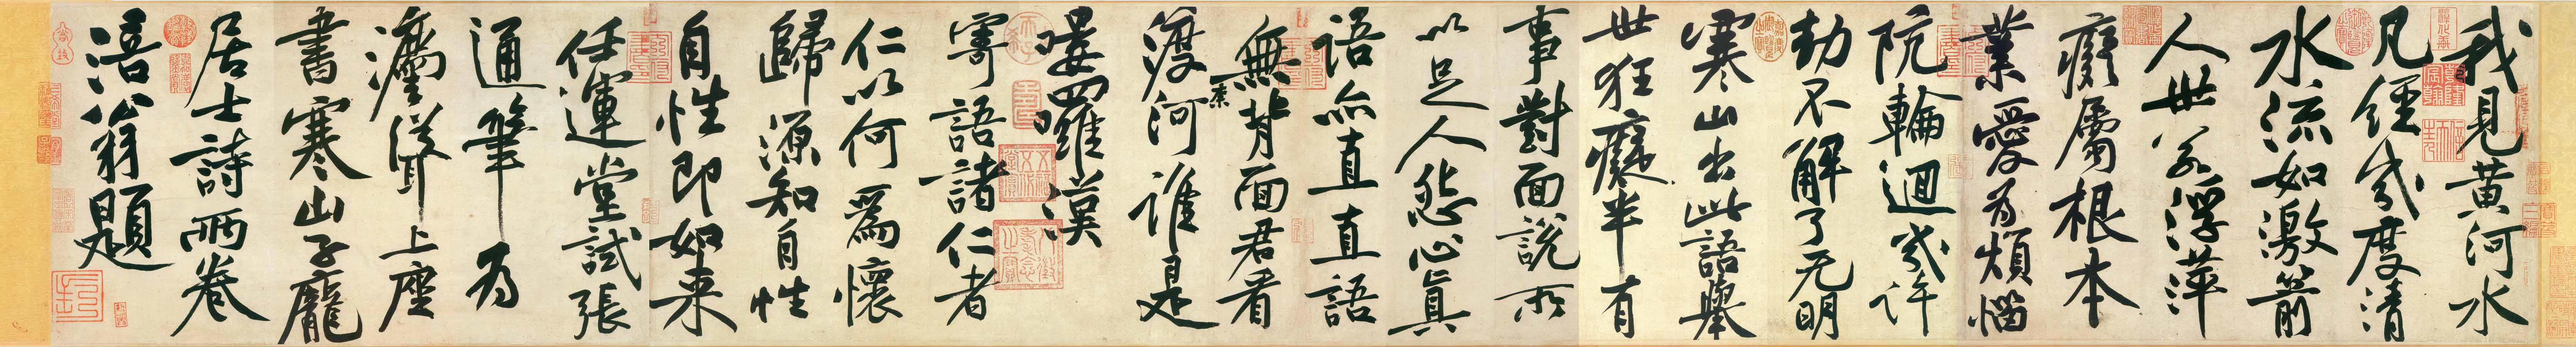 我見黄河水
凡經幾度清
水流如激箭
人世若浮萍
癡屬根本
業愛為煩惱
阬輪迴幾許
劫不解了无明
寒山出此語舉
世狂癡半有
事對面說所
以足人怨心真
語亦直直語
無背面君看
渡柰河誰是
嘍囉漢
寄語諸仁者
仁以何爲懷
歸源知自性
自性即如来
任運堂試張
通筆為
灋聳上座
書寒山子龐
居士詩兩卷
涪翁題